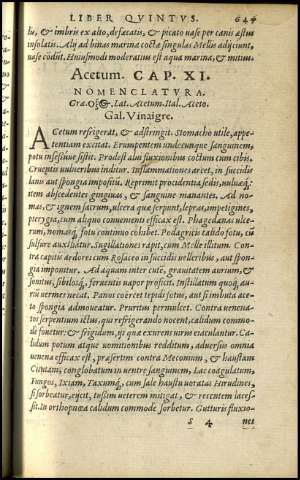 LIBER QVINTVS. 644
lu, & imbris ex alto, defæcatis, & picato uase per canis æstus
insolatis. Alij ad binas marina coctæ singulas Mellis adijciunt,
uase cōdūt. Huiusmodi moderatius est aqua marina, &
Acetum. CAP. XI.
NOMENCLATVRA.
Græ. Lat. Acetum. Ital. Aceto.
Gal. Vinaigre.
ACetum refrigerat, & adstringit. Stomacho utile, appe-
tentiam excitat. Erumpentem undecunque sanguinem,
potu insessiue sistit. Prodest alui fluxionibus coctum cum cibis.
Cruentis uulneribus inditur. Inflammationes arcet, in succidis
lanis aut spongia impositū. Reprimit procidentia sedis, uuluæq́;
item abscedentes gingiuas, & sanguine manantes. Ad no-
mas, & ignem sacrum, ulcera quæ serpunt, lepras, impetigines,
pterygia, cum aliquo conuenienti efficax est. Phagedænas ulce-
rum, nomasq́; fotu continuo cohibet. Podagricis calido fotu, cū
sulfure auxiliatur. Sugillationes rapit, cum Melle illitum. Con-
tra capitis ardores cum Rosaceo in succidis uelleribus, aut spon-
gia imponitur. Ad aquam inter cutē, grauitatem aurium, &
sonitus, sibilosq́; feruentis uapor proficit. Instillatum quoq; au-
riū uermes necat. Panos coërcet tepidi fotus, aut si imbuta ace-
to spongia admoueatur. Pruritus permulcet. Contra uenena-
torū serpentum ictus, qui refrigerando nocent, calidum commo-
de fouetur: & frigidum, ijs qui uirus eiaculantur. Ca-
lidum potum atque uomitionibus redditum, aduersus omnia
uenena efficax est, præsertim contra Meconium, & haustam
Cicutam, conglobatum in uentre sanguinem, Lac coagulatum,
Fungos, Ixiam, Taxumq́; cum sale haustu uoratas Hirudines,
si sorbeatur, eijcit, tussim ueterem mitigat, & recentem laces-
sit. In orthopnœa calidum commode sorbetur. Gutturis fluxio-
S 4 nes